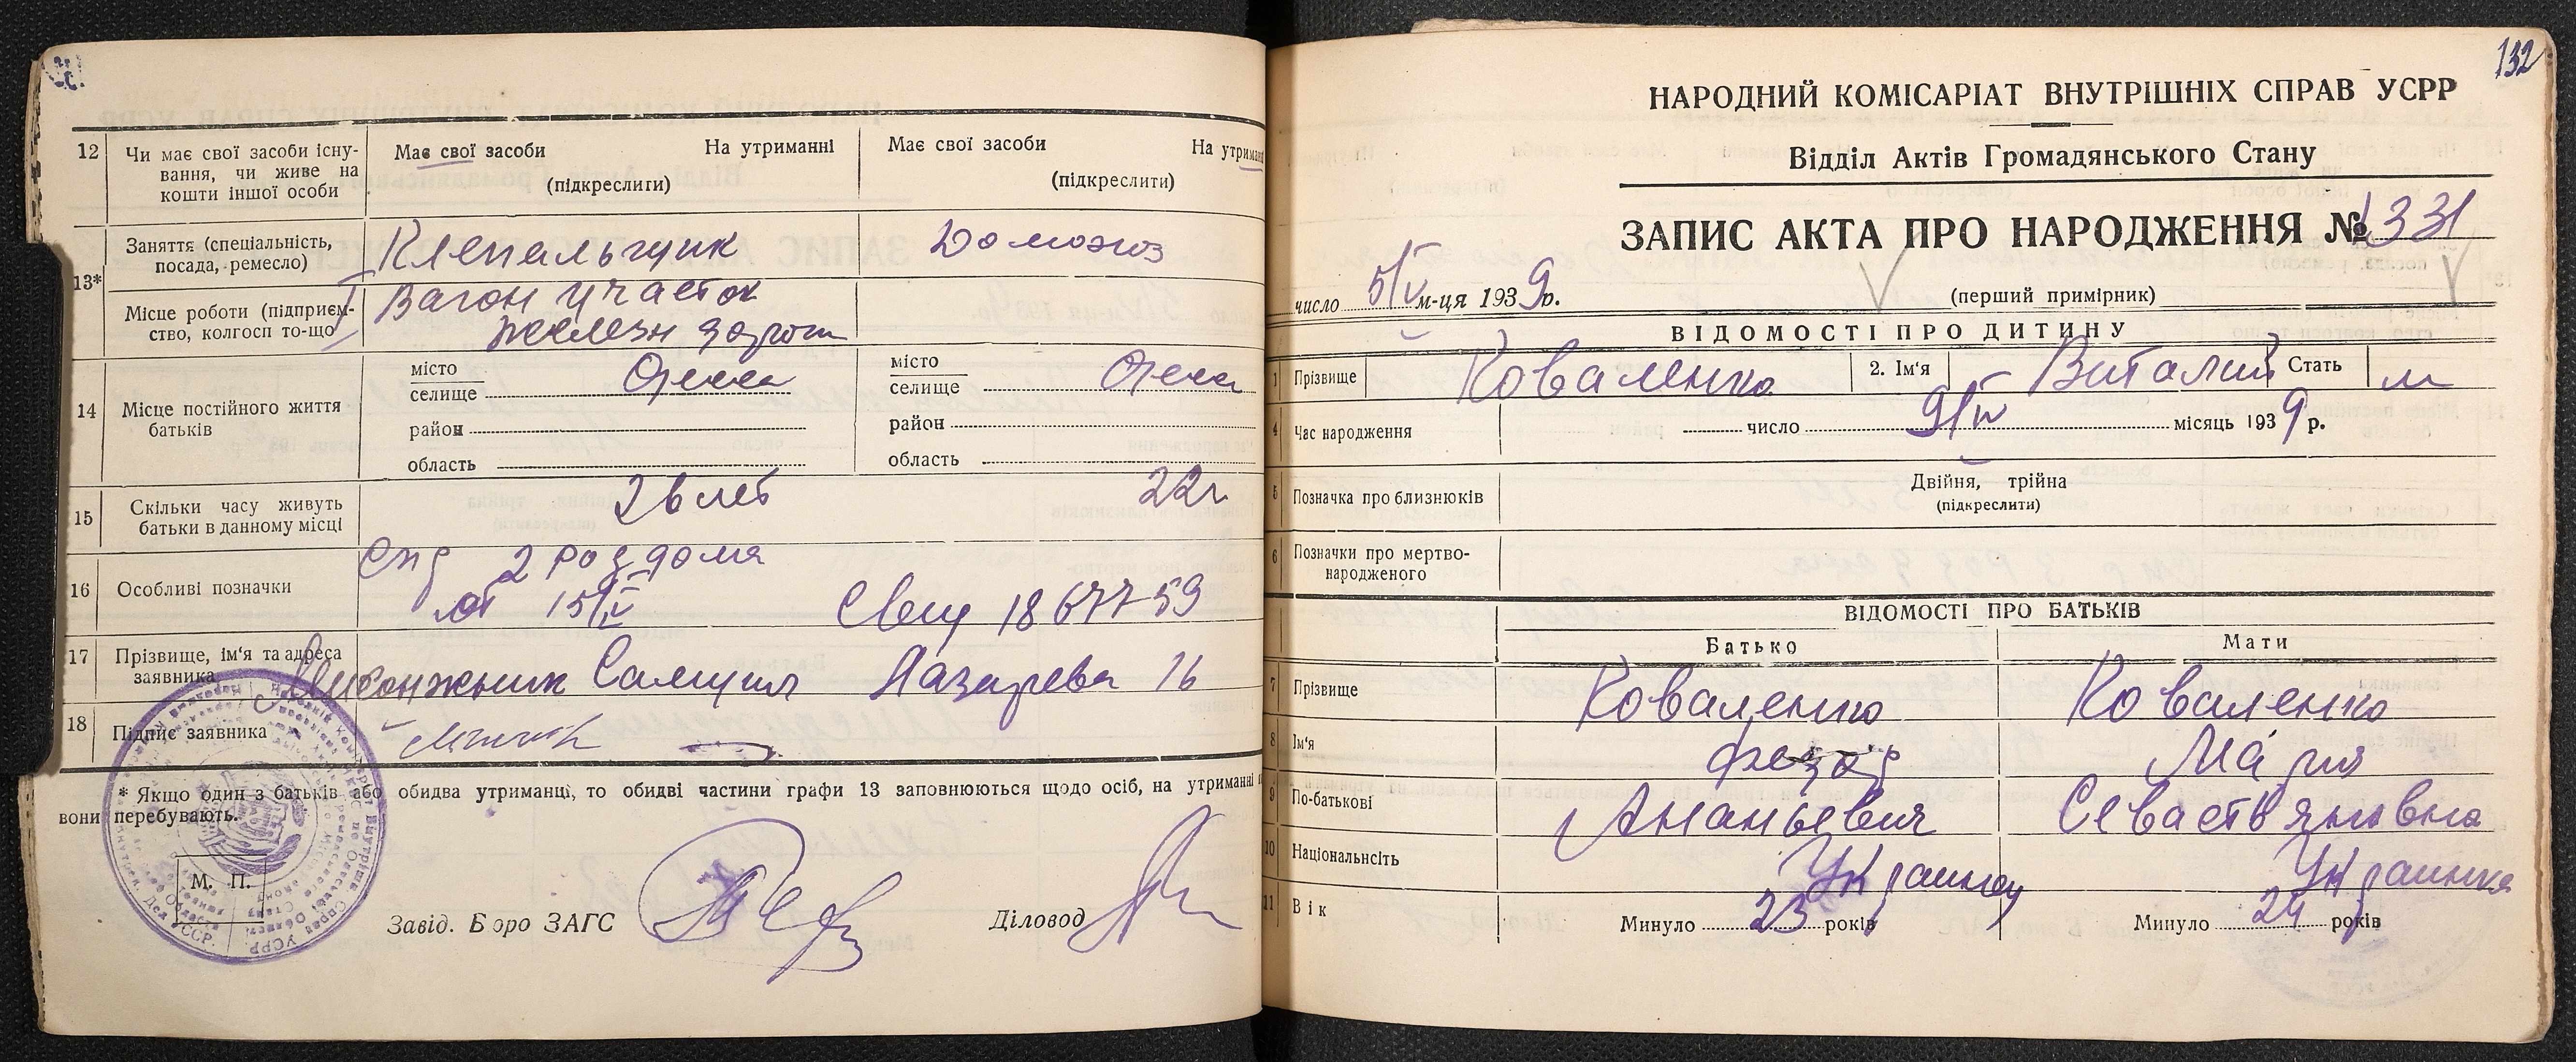 12 Чи має свої засоби існування, чи живе на кошти іншої особи
Має свої засоби На утриманні
(підкреслити)
Має свої засоби На утриманні
(підкреслити)
13* Заняття (спеціальність, посада, ремесло) Клепальщик Домохоз
Місце роботи (підприємство, колгосп то-що) Вагон участок
железн дорог
14 Місце постійного життя батьків
місто
селище Одесса
район
область
місто
селище Одесса
район
область
15 Скільки часу живуть батьки в данному місці
лет 22г
16 Особливі позначки
Спр 2 род дома
от 15/V Свид 18677-59
17 Прізвище, ім'я та адреса заявника
Лазарева 16
18 Підпис заявника
* Якщо один з батьків або обидва утриманці, то обидві частини графи 13 заповнюються щодо осіб, на утриманні
вони перебувають.
М. П.
Завід. Бюро ЗАГС Діловод
132
НАРОДНИЙ КОМІСАРІАТ ВНУТРІШНІХ СПРАВ УСРР
Відділ Актів Громадянського Стану
ЗАПИС АКТА ПРО НАРОДЖЕННЯ № 1331
число 5/V м-ця 1939 р. (перший примірник)
ВІДОМОСТІ ПРО ДИТИНУ
1 Прізвище Коваленко 2. Ім'я Виталий Стать м
4 Час народження число 9/IV місяць 1939 р.
5 Позначка про близнюків Двійня, трійна
(підкреслити)
6 Позначки про мертвонародженого
ВІДОМОСТІ ПРО БАТЬКІВ
Батько Мати
7 Прізвище Коваленко Коваленко
8 Ім'я Федор Мария
9 По-батькові Ананьевич Севастьяновна
10 Національність Украинец Украинка
11 Вік Минуло 23 років Минуло 24 років